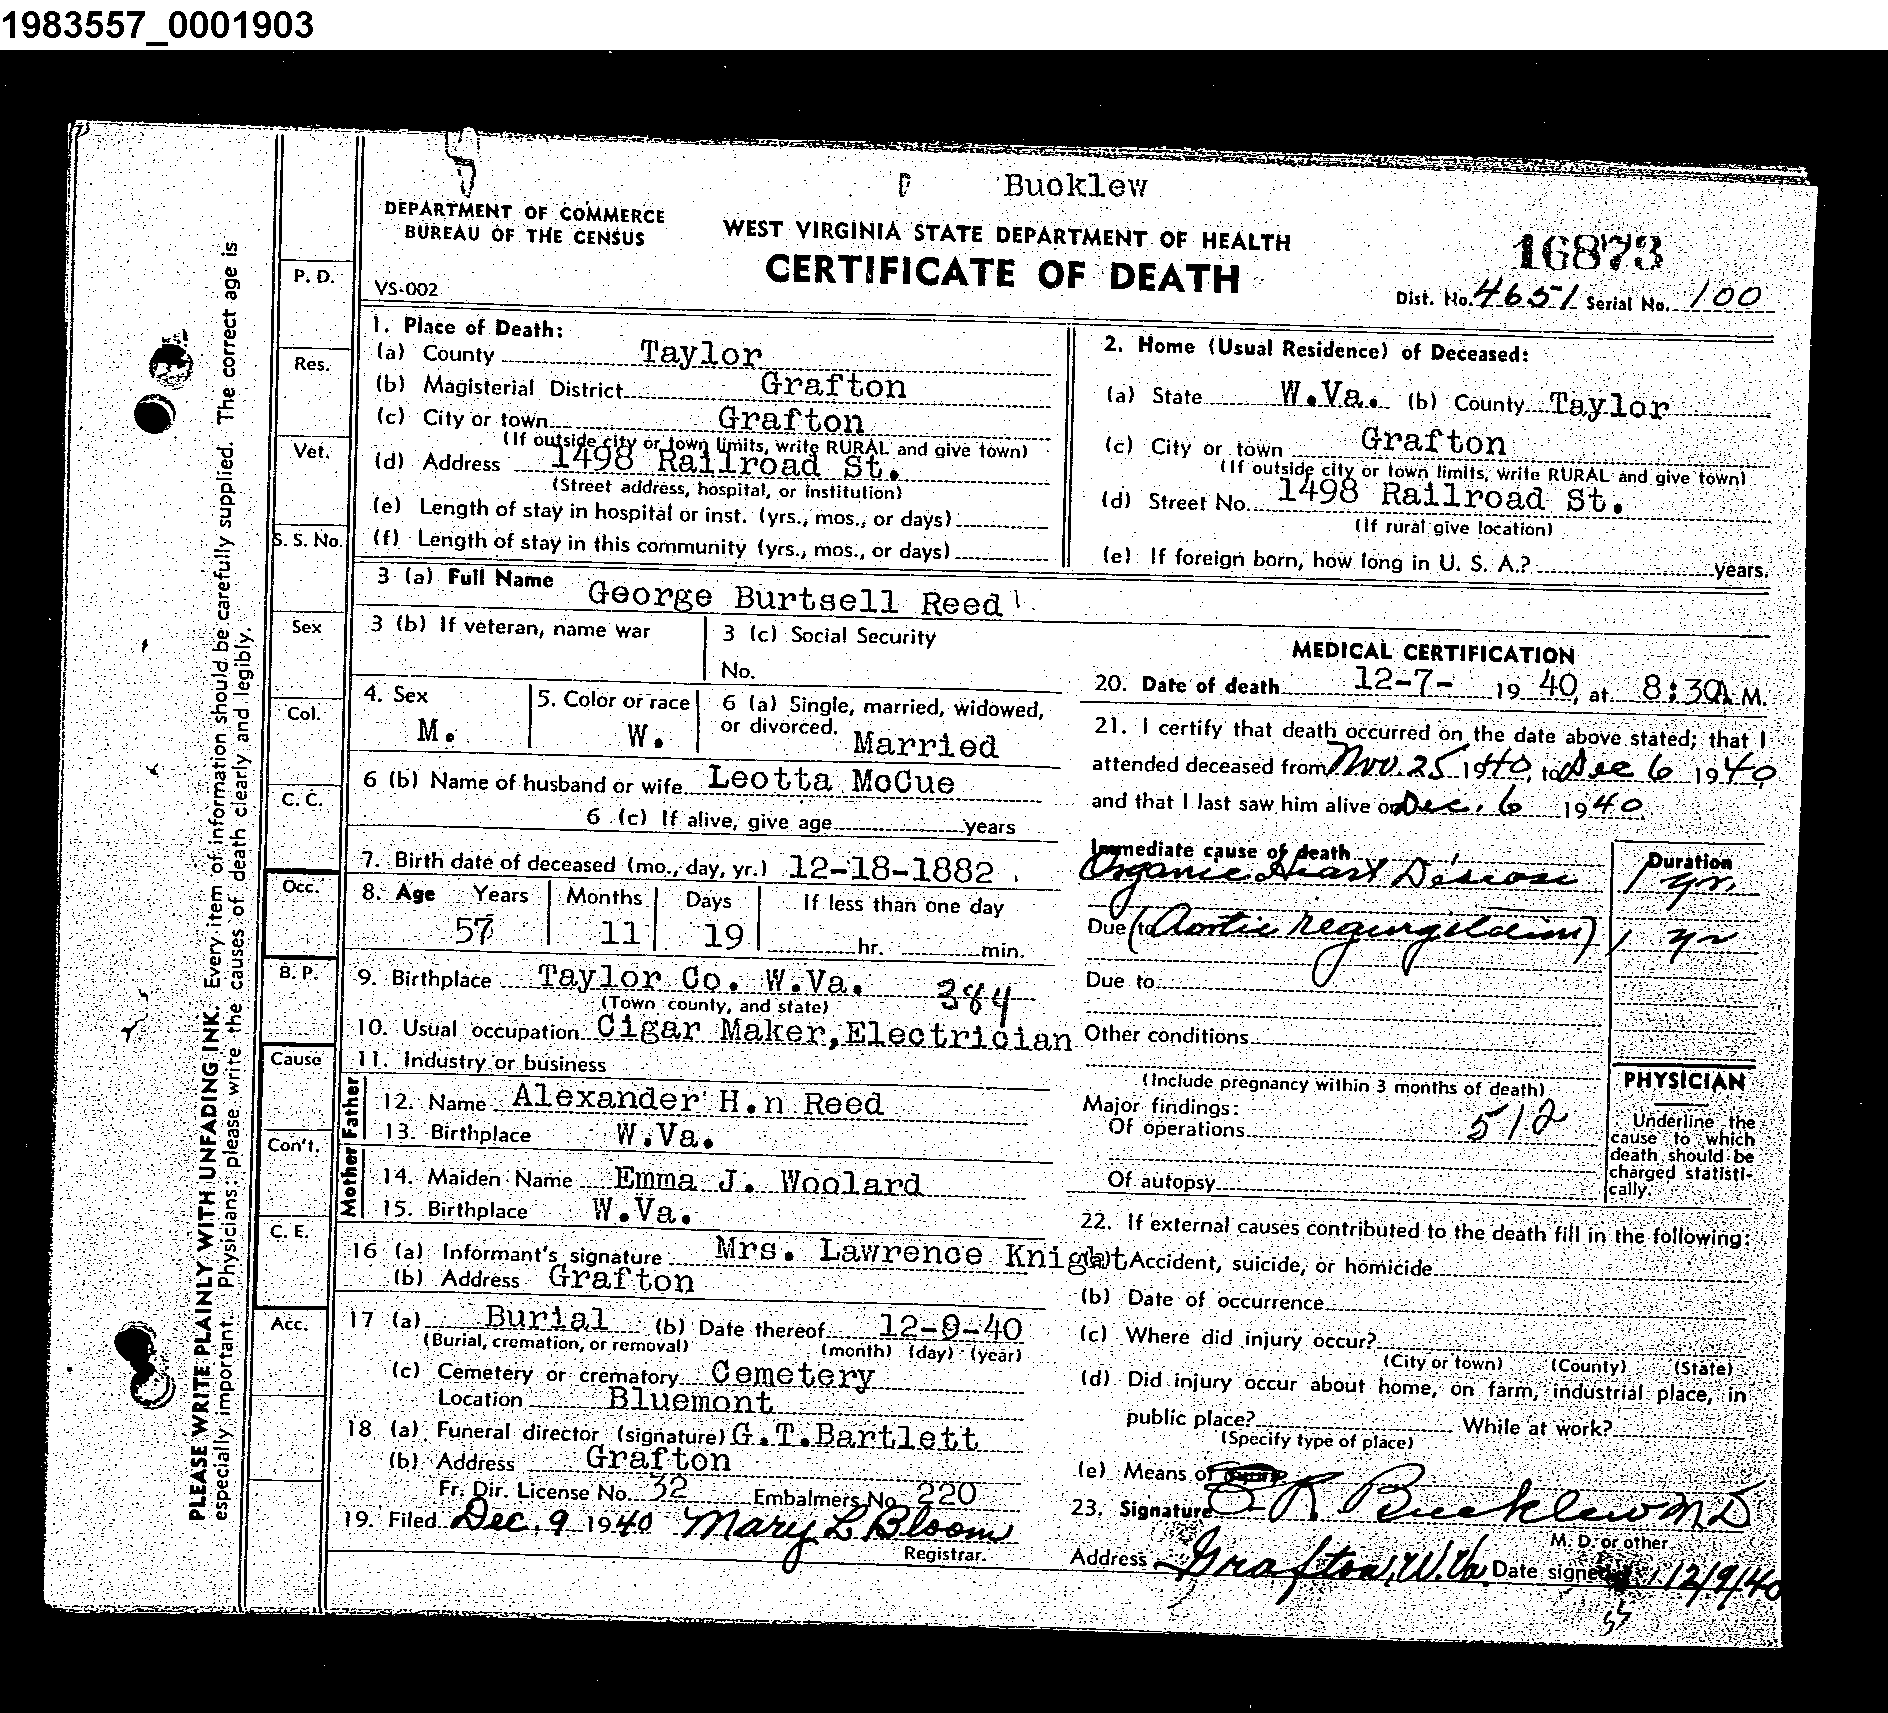 1983557_0001903
Buoklew
DEPARTMENT OF COMMERCE
BUREAU OF THE CENSUS
VS-002
WEST VIRGINIA STATE DEPARTMENT OF HEALTH
CERTIFICATE OF DEATH
16873
Dist. No. 4651 Serial No. 100
PLEASE WRITE PLAINLY WITH UNFADING INK. Every item of information should be carefully supplied. The correct age is
especially important. Physicians: please write the causes of death clearly and legibly.
P. D.
Res.
Vet.
S. S. No.
Sex
Col.
C. C.
Occ.
B. P.
Cause
Con't.
C. E.
Acc.
1. Place of Death:
(a) County Taylor
(b) Magisterial District Grafton
(c) City or town Grafton
(If outside city or town limits, write RURAL and give town)
(d) Address 1498 Railroad St.
(Street address, hospital, or institution)
(e) Length of stay in hospital or inst. (yrs., mos., or days)
(f) Length of stay in this community (yrs., mos., or days)
2. Home (Usual Residence) of Deceased:
(a) State W.Va. (b) County Taylor
(c) City or town Grafton
(If outside city or town limits, write RURAL and give town)
(d) Street No. 1498 Railroad St.
(If rural give location)
(e) If foreign born, how long in U. S. A.? years.
3 (a) Full Name George Burtsell Reed
3 (b) If veteran, name war
3 (c) Social Security
No.
4. Sex M.
5. Color or race W.
6 (a) Single, married, widowed,
or divorced. Married
6 (b) Name of husband or wife Leotta McCue
6 (c) If alive, give age years
7. Birth date of deceased (mo., day, yr.) 12-18-1882
8. Age Years Months Days If less than one day
57 11 19 hr. min.
9. Birthplace Taylor Co. W.Va. 384
(Town county, and state)
10. Usual occupation Cigar Maker,Electrician
11. Industry or business
Father
12. Name Alexander H.n Reed
13. Birthplace W.Va.
Mother
14. Maiden Name Emma J. Woolard
15. Birthplace W.Va.
16 (a) Informant's signature Mrs. Lawrence Knight
(b) Address Grafton
17 (a) Burial (b) Date thereof 12-9-40
(Burial, cremation, or removal) (month) (day) (year)
(c) Cemetery or crematory Cemetery
Location Bluemont
18 (a) Funeral director (signature) G.T.Bartlett
(b) Address Grafton
Fr. Dir. License No. 32 Embalmers No. 220
19. Filed Dec. 9 1940 Mary L Bloom
Registrar.
MEDICAL CERTIFICATION
20. Date of death 12-7- 19 40, at 8:30A M.
21. I certify that death occurred on the date above stated; that I
attended deceased from Nov. 25 1940, to Dec 6 1940,
and that I last saw him alive on Dec. 6 1940
Immediate cause of death Duration
Organic Heart Disease 1 yr.
Due to (Aortic regurgitation) 1 yr
Due to
Other conditions
(Include pregnancy within 3 months of death)
Major findings:
Of operations 512
Of autopsy
PHYSICIAN
Underline the
cause to which
death should be
charged statisti-
cally.
22. If external causes contributed to the death fill in the following:
(a) Accident, suicide, or homicide
(b) Date of occurrence
(c) Where did injury occur?
(City or town) (County) (State)
(d) Did injury occur about home, on farm, industrial place, in
public place? While at work?
(Specify type of place)
(e) Means of
23. Signature R Bucklew M.D
M. D. or other
Address Grafton, W.Va. Date signed 12/9/40